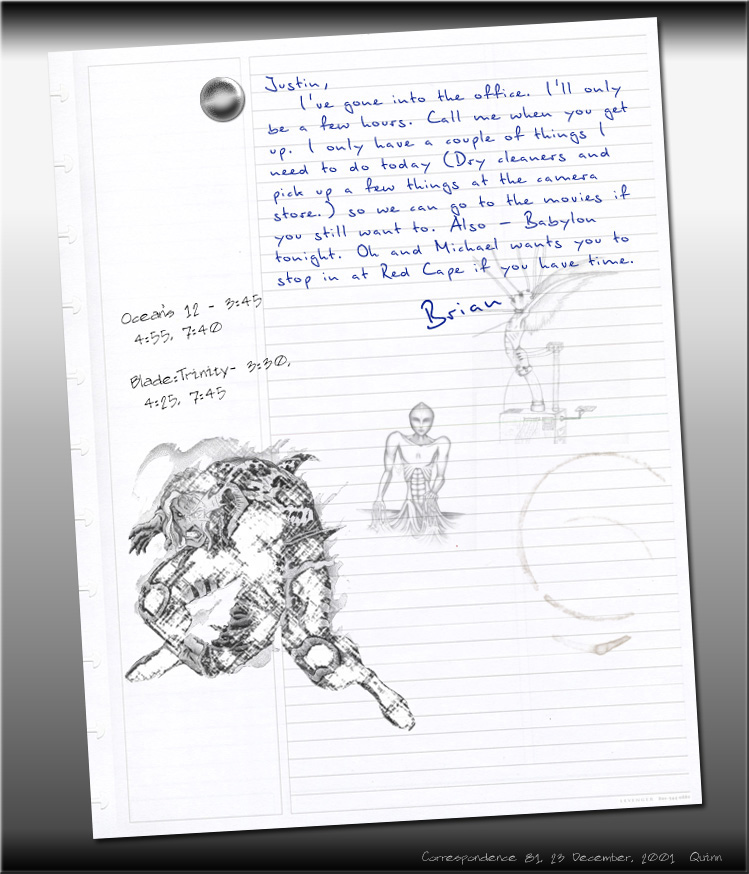 Justin,
I've gone into the office. I'll only
be a few hours. Call me when you get
up. I only have a couple of things I
need to do today (Dry cleaners and
pick up a few things at the camera
store.) so we can go to the movies if
you still want to. Also – Babylon
tonight. Oh and Michael wants you to
stop in at Red Cape if you have time.
Brian
Ocean's 12 - 3:45
4:55, 7:40
Blade:Trinity- 3:30,
4:25, 7:45
Correspondence 81, 23 December, 2001 Quinn